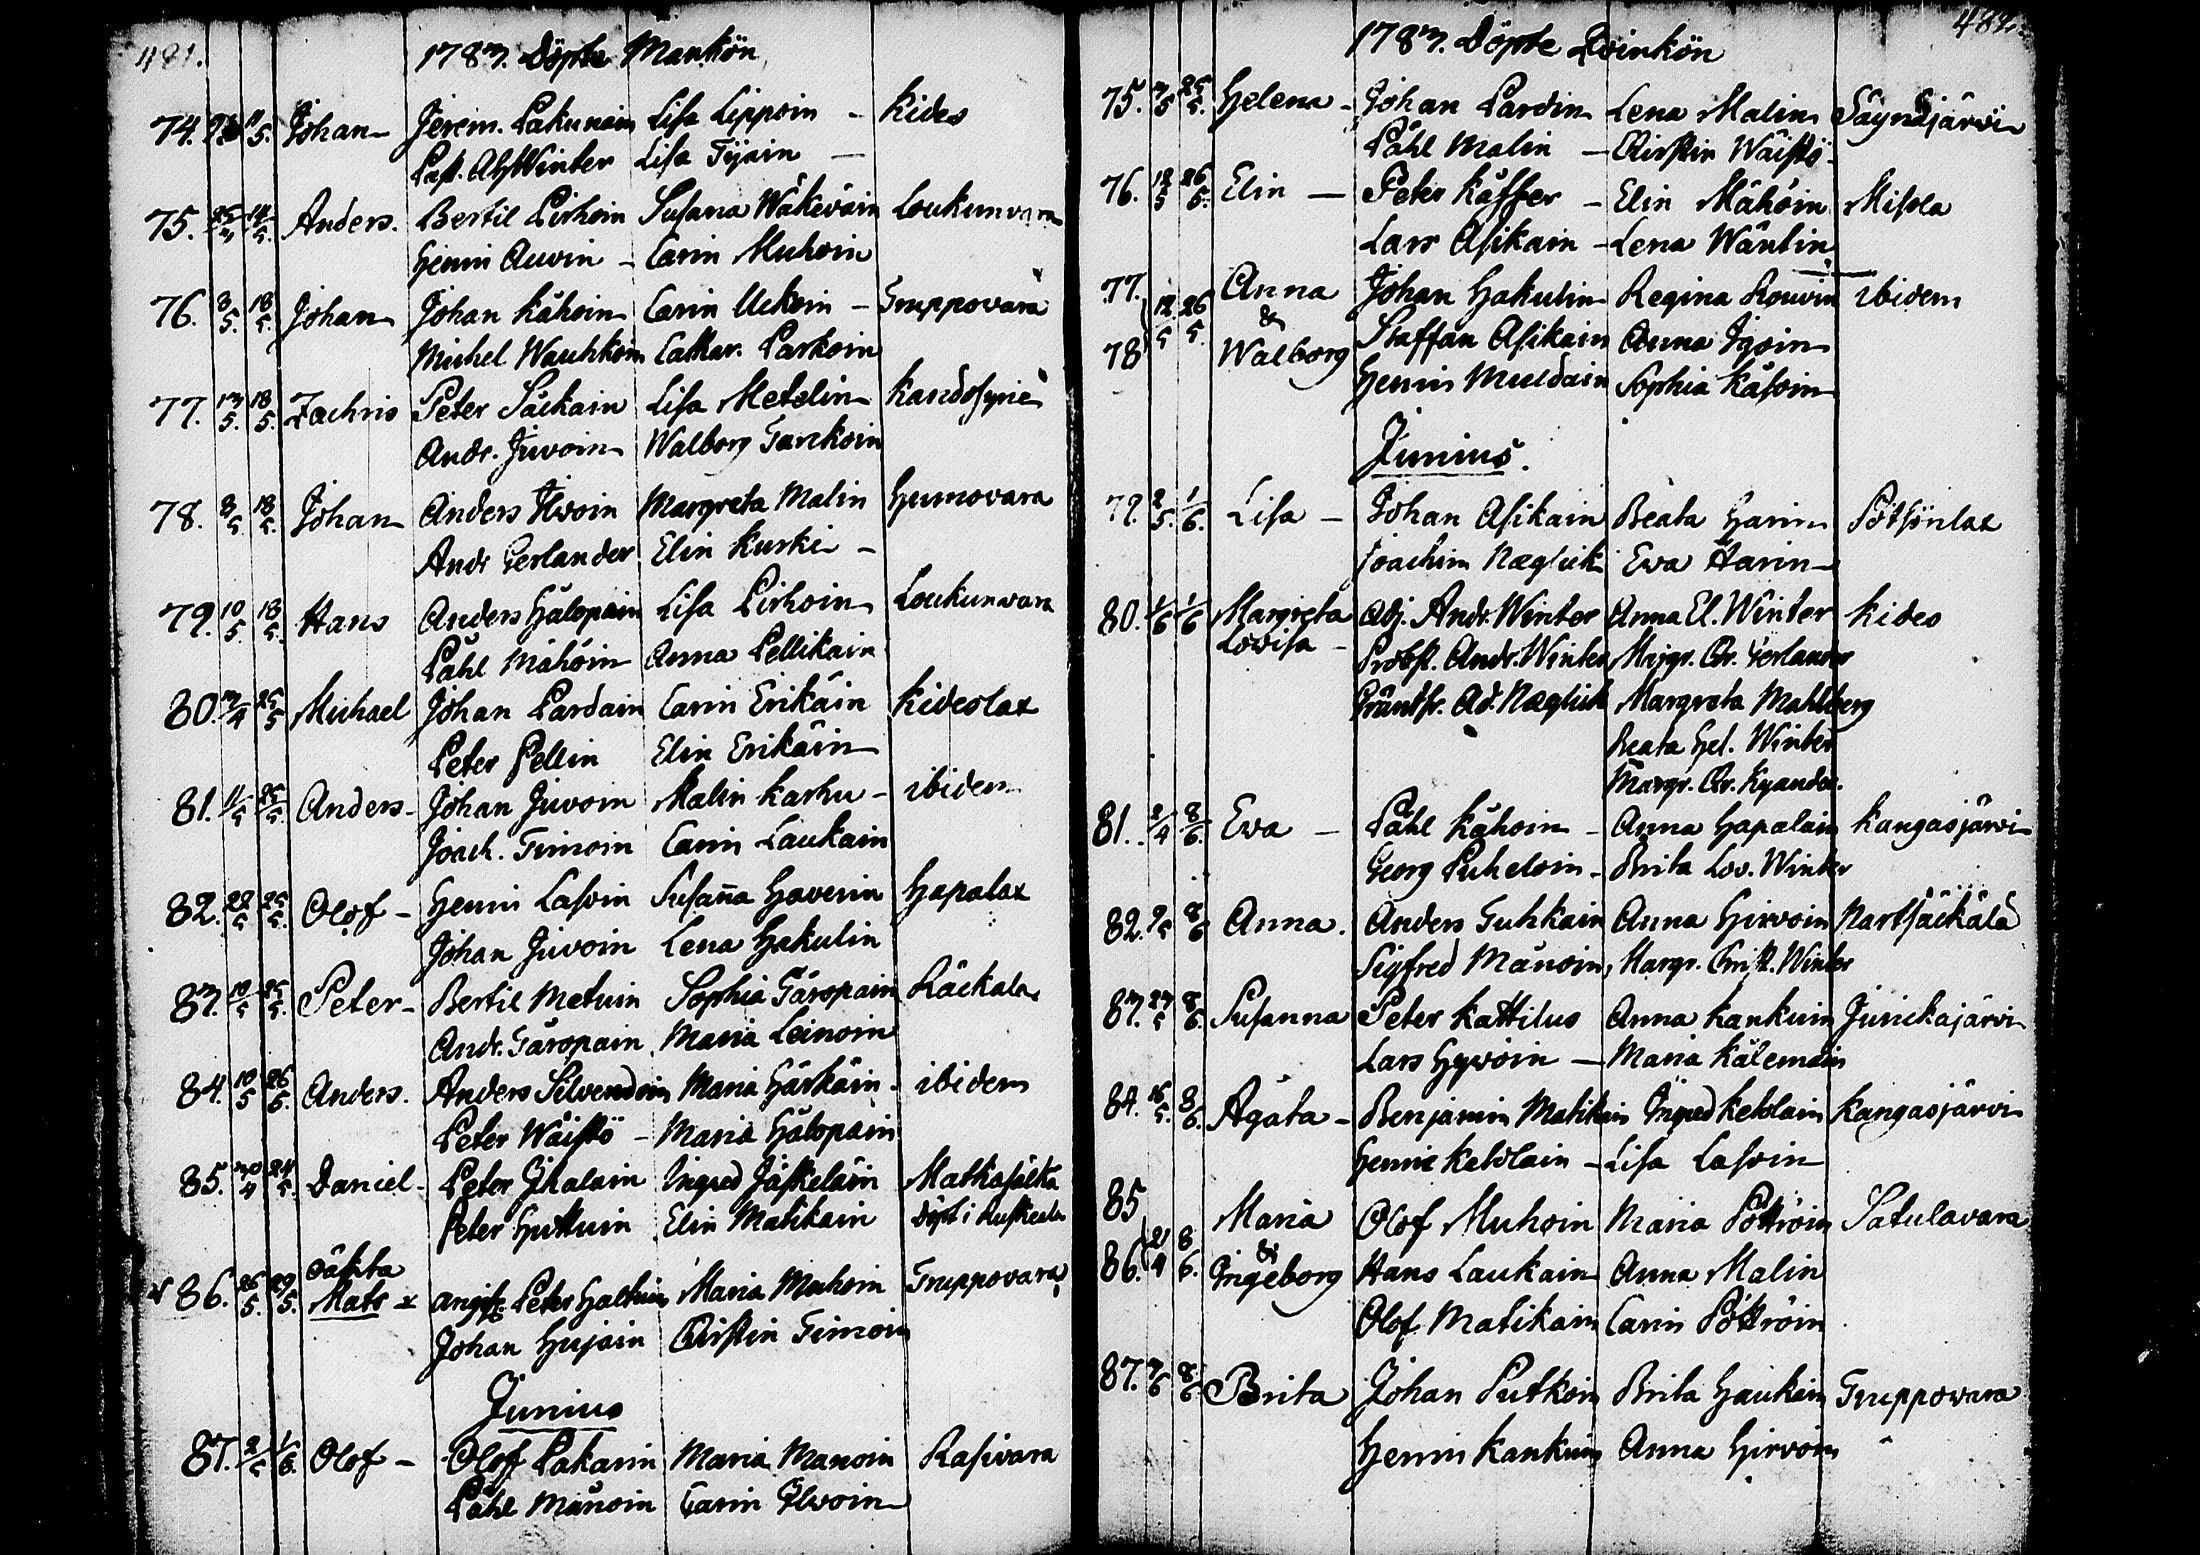 481.
1783. Döpte Mankön
74. 5. Johan Jerem. Pakunain Lisa Lippoin - Kides
Past. Ab Winter Lisa Tijain -
75. 14/5. Anders. Bertil Pirhoin Susana Wäkeväin Loukunvara
Henni Auvin - Carin Muhoin
76. 8/5. 18/5. Johan Johan Kähoin Carin Uckoin - Truppovara
Michel Wauhkoin Cathar. Parkoin
77. 13/5. 18/5. Zachris Peter Säckain Lisa Metelin
Andr. Juvoin Walborg Tarckoin
78. 8/5 18/5. Johan Anders Ilvoin Margreta Malin Humovara
Andr Gerlander Elin Kurki -
79. 10/5 18/5. Hans Anders Hälopain Lisa Pirhoin Loukunvara
Påhl Mähöin Anna Pellikain
80. 3/4 25/5 Michael Johan Pardain Carin Erikäin Kideslax
Peter Pellin Elin Erikäin
81. 11/5 25/5. Anders - Johan Juvoin Malin Karhu - ibidem
Joach. Timoin Carin Laukain
82. 22/5 25/5. Olof - Henni Lasoin Susaña Haverin Hapalax
Johan Juvoin Lena Hakulin
83. 18/5 25/5. Peter - Bertil Metuin Sophia Täropain Räckala
Andr. Täropain Maria Leinoin
84. 10/5 26/5. Anders. Anders Silvendoin Maria Härkäin - ibidem
Peter Wäistö - Maria Hälopain
85. 30/4 24/5. Daniel - Peter Ihalain Ingred Jäskeläin Matkasälkä
Peter Huttuin Elin Matikain döpt i Ruskeala
86. 26/5. 29/5. oäkta Mats x angifs. Peter Haltuin Maria Muhoin Truppovara
Johan Hujain Christin Timoin
Junius
87. 2/5 1/6. Olof - Olof Pakarin Maria Manoin Rasivara
Påhl Mänoin Carin Ilvoin
482.
1783. Döpte Qvinkön
75. 3/5 25/5. Helena - Johan Pardin Lena Malin Säynäjärvi
Påhl Malin - Christin Wäistö
76. 12/5 26/5. Elin - Peter Käffer - Elin Mähöin Misola
Lars Asikain - Lena Wäntin
77. 78 12/5 26/5. Anna & Walborg Johan Hakulin Regina Rouvin ibidem
Staffan Asikain Anna Igoin
Henni Muldain Sophia Käsoin
Junius.
79. 2/5. 1/6. Lisa - Johan Asikain Beata Harin Pötsönlax
Joachim Næglick Ewa Harin
80. 1/6 1/6 Margreta Lovisa - Adj. Andr. Winter Anna El. Winter Kides
Probst. Andr. Winter Margr. Chr. Gerlander
Ad. Næglick Margreta Mahlberg
Beata Hel. Winter
Margr. Chr. Kyander.
81. 2/4 8/6. Ewa - Påhl Kähoin - Anna Hapalain Kangasjärvi
Georg Puheloin - Brita Lov. Winter
82. 9/5 8/6 Anna. Anders Tuhkain Anna Hirvoin Nartsäckälä
Sigfred Mänoin, Margr. Christ. Winter
83. 23/5 8/6. Susanna Peter Kattilus Anna Kankuin Junickajärvi
Lars Hyvöin - Maria Kälemäin
84. 16/5. 8/6. Agata - Benjamin Matikain Ingred Kekolain Kangasjärvi
Henric Kekolain - Lisa Lasoin
85 86. 21/4 8/6. Maria & Ingeborg Olof Muhoin Maria Pöttröin Satulavara
Hans Laukain Anna Malin
Olof Matikain Carin Pöttröin
87. 3/6 8/6 Brita Johan Putkoin Brita Haukain Truppovara
Henni Kankuin Anna Hirvoin